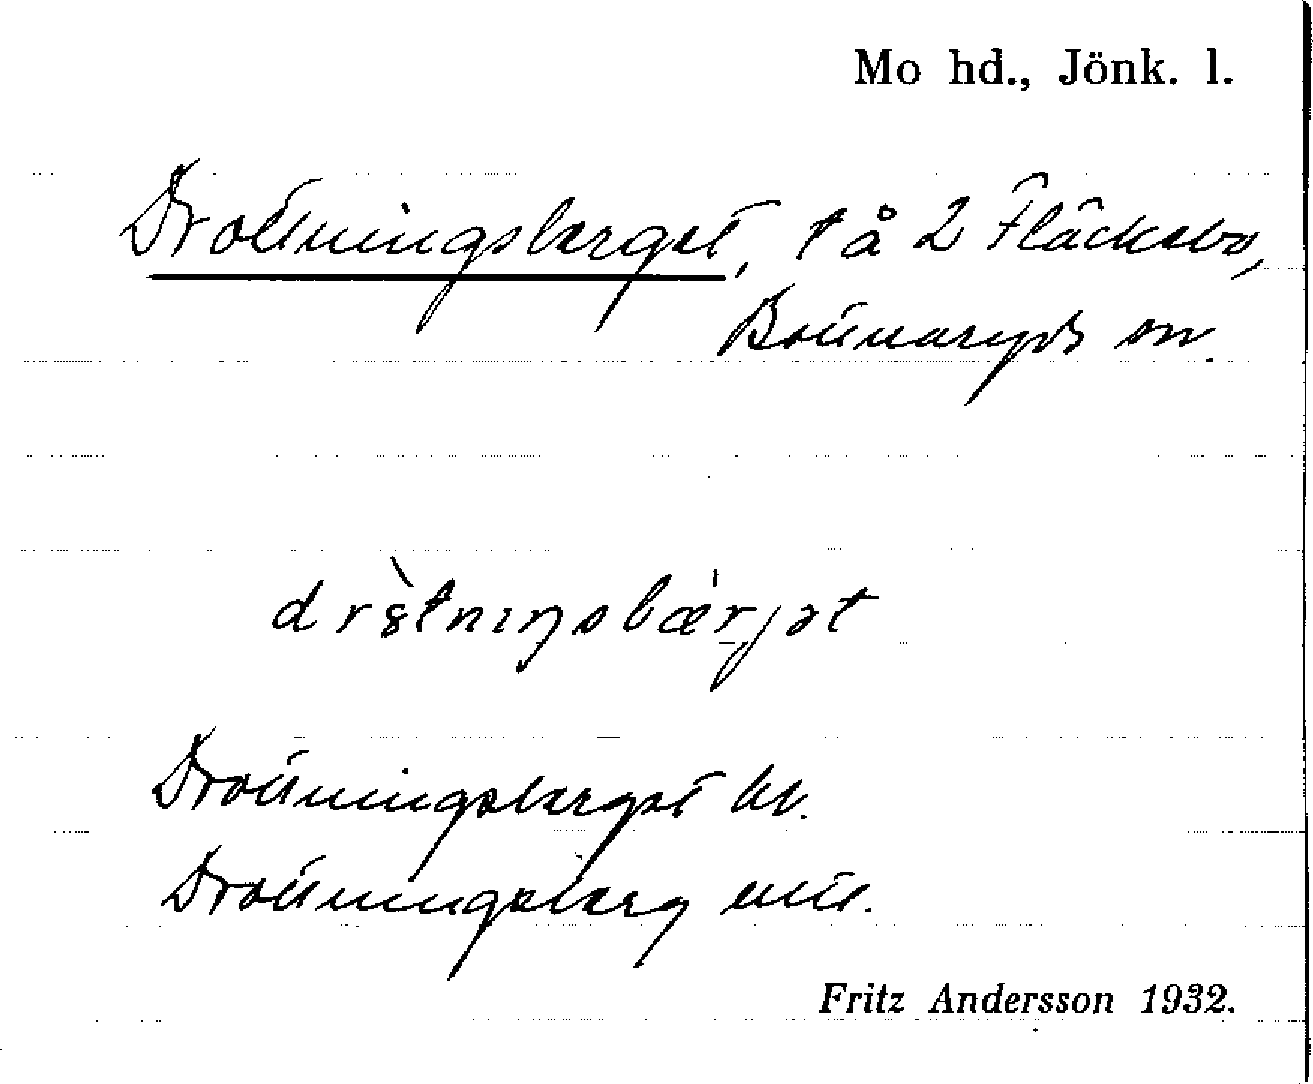 Mo hd., Jönk. l.
Drottningsberget, t å 2 Fläckebo,
Bottnaryds sn.
drs̀tnıŋsbæ̍rjət
Drottningsberget hl.
Drottningsberg
Fritz Andersson 1932.